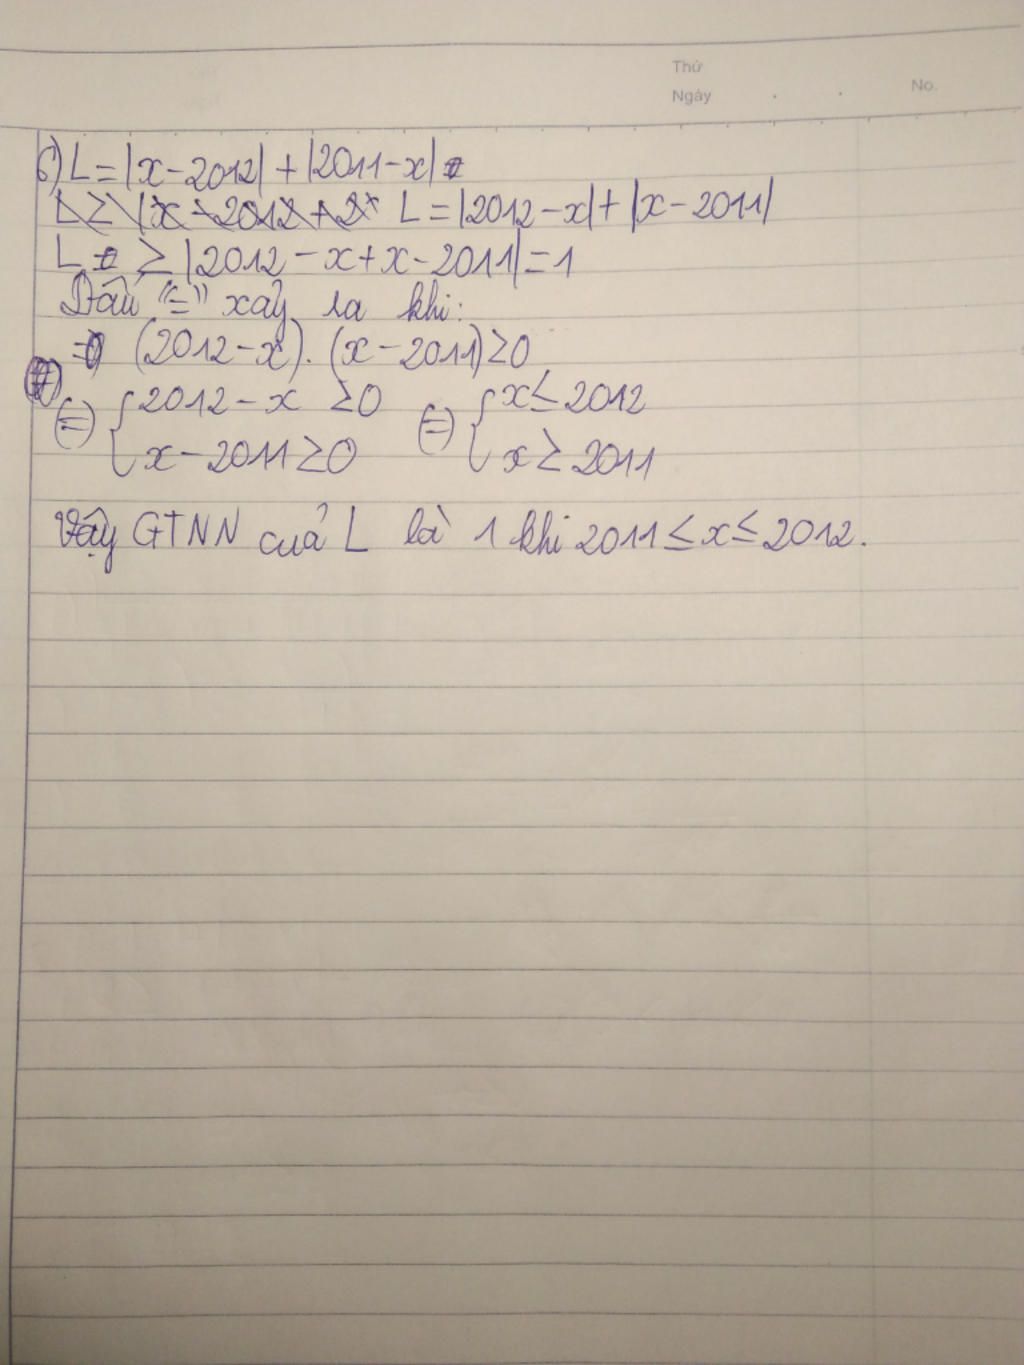 Thứ
Ngày . . No.
6) L = |x - 2012| + |2011 - x|
L = |2012 - x| + |x - 2011|
L ≥ |2012 - x + x - 2011| = 1
Dấu "=" xảy ra khi:
(2012 - x). (x - 2011) ≥ 0
(=) { 2012 - x ≥ 0 (=) { x ≤ 2012
x - 2011 ≥ 0 x ≥ 2011
Vậy GTNN của L là 1 khi 2011 ≤ x ≤ 2012.